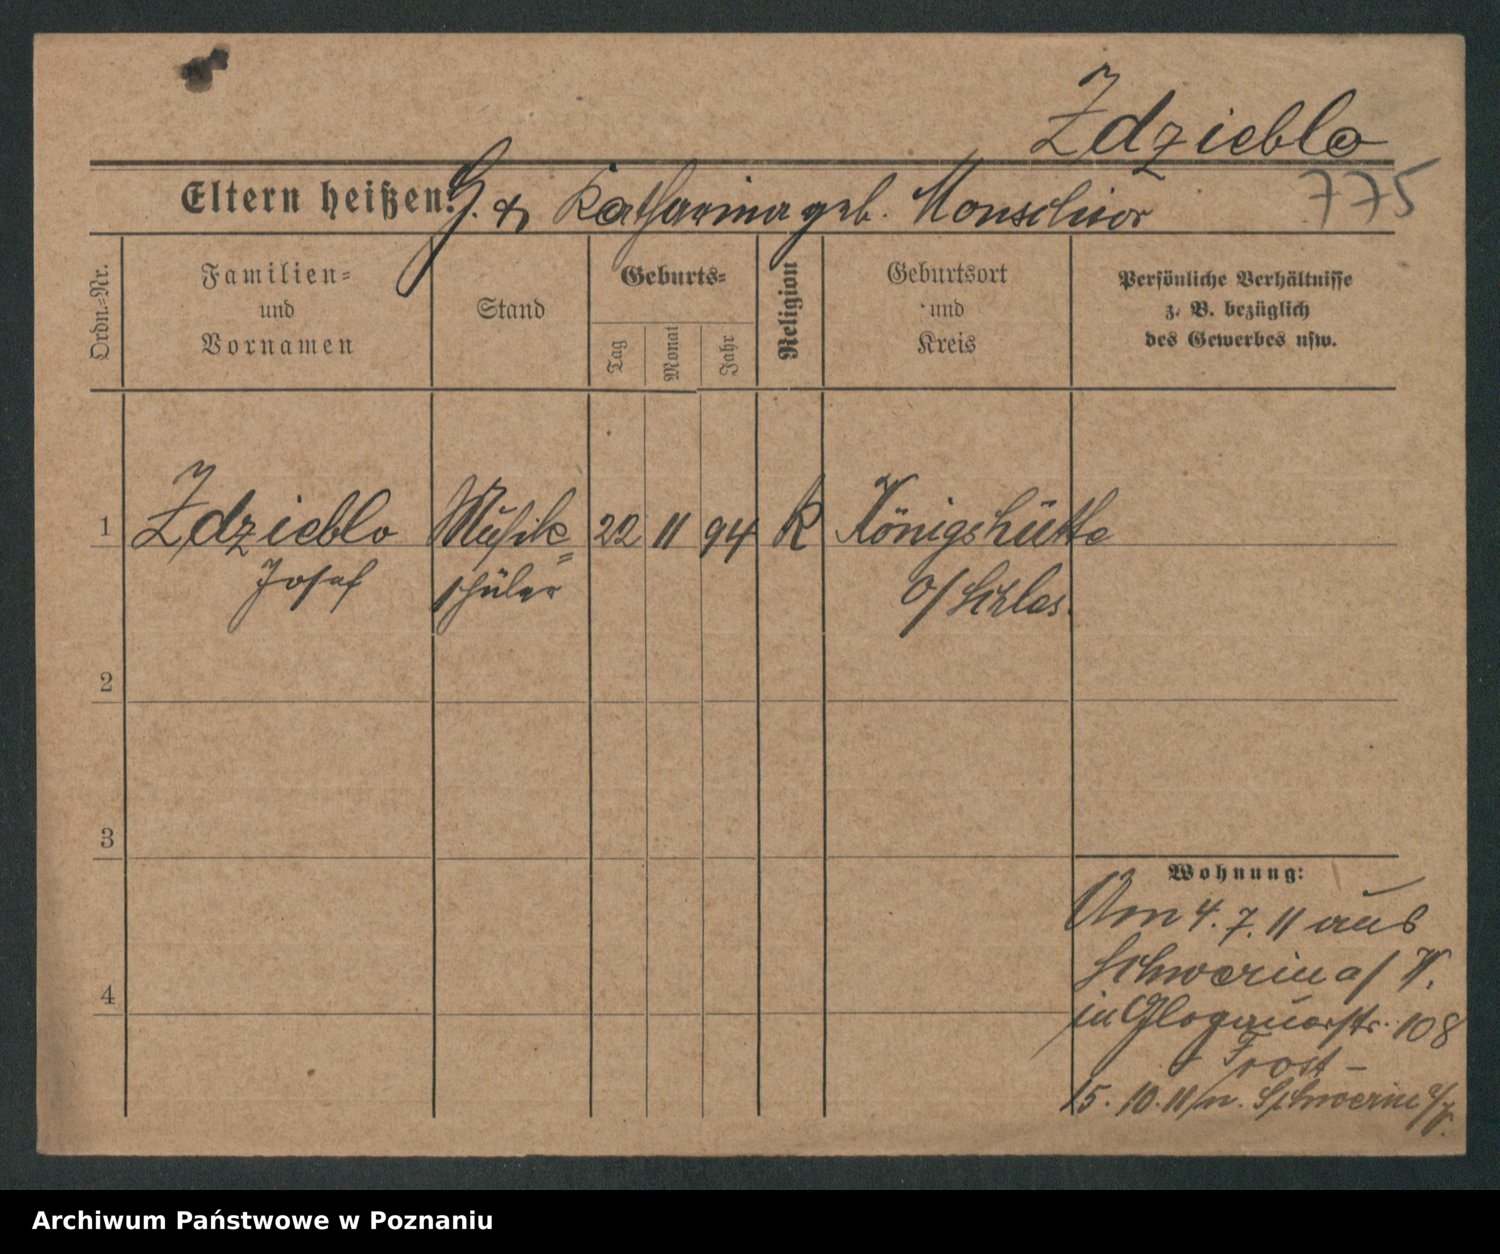 Zdzieblo
775
Eltern heißen: J. & Katharina geb. Monschior
Ordn.-Nr.
Familien-
und
Vornamen
Stand
Geburts-
Tag
Monat
Jahr
Religion
Geburtsort
und
Kreis
Persönliche Verhältnisse
z. B. bezüglich
des Gewerbes usw.
1 Zdzieblo Musik- 22 11 94 K Königshütte
Josef schüler O/Schles.
2
3
4
Wohnung:
Am 4. 7. 11 aus
Schwerin a/W.
in Glogauerstr. 108
Frost –
15. 10. 11 n. Schwerin
Archiwum Państwowe w Poznaniu